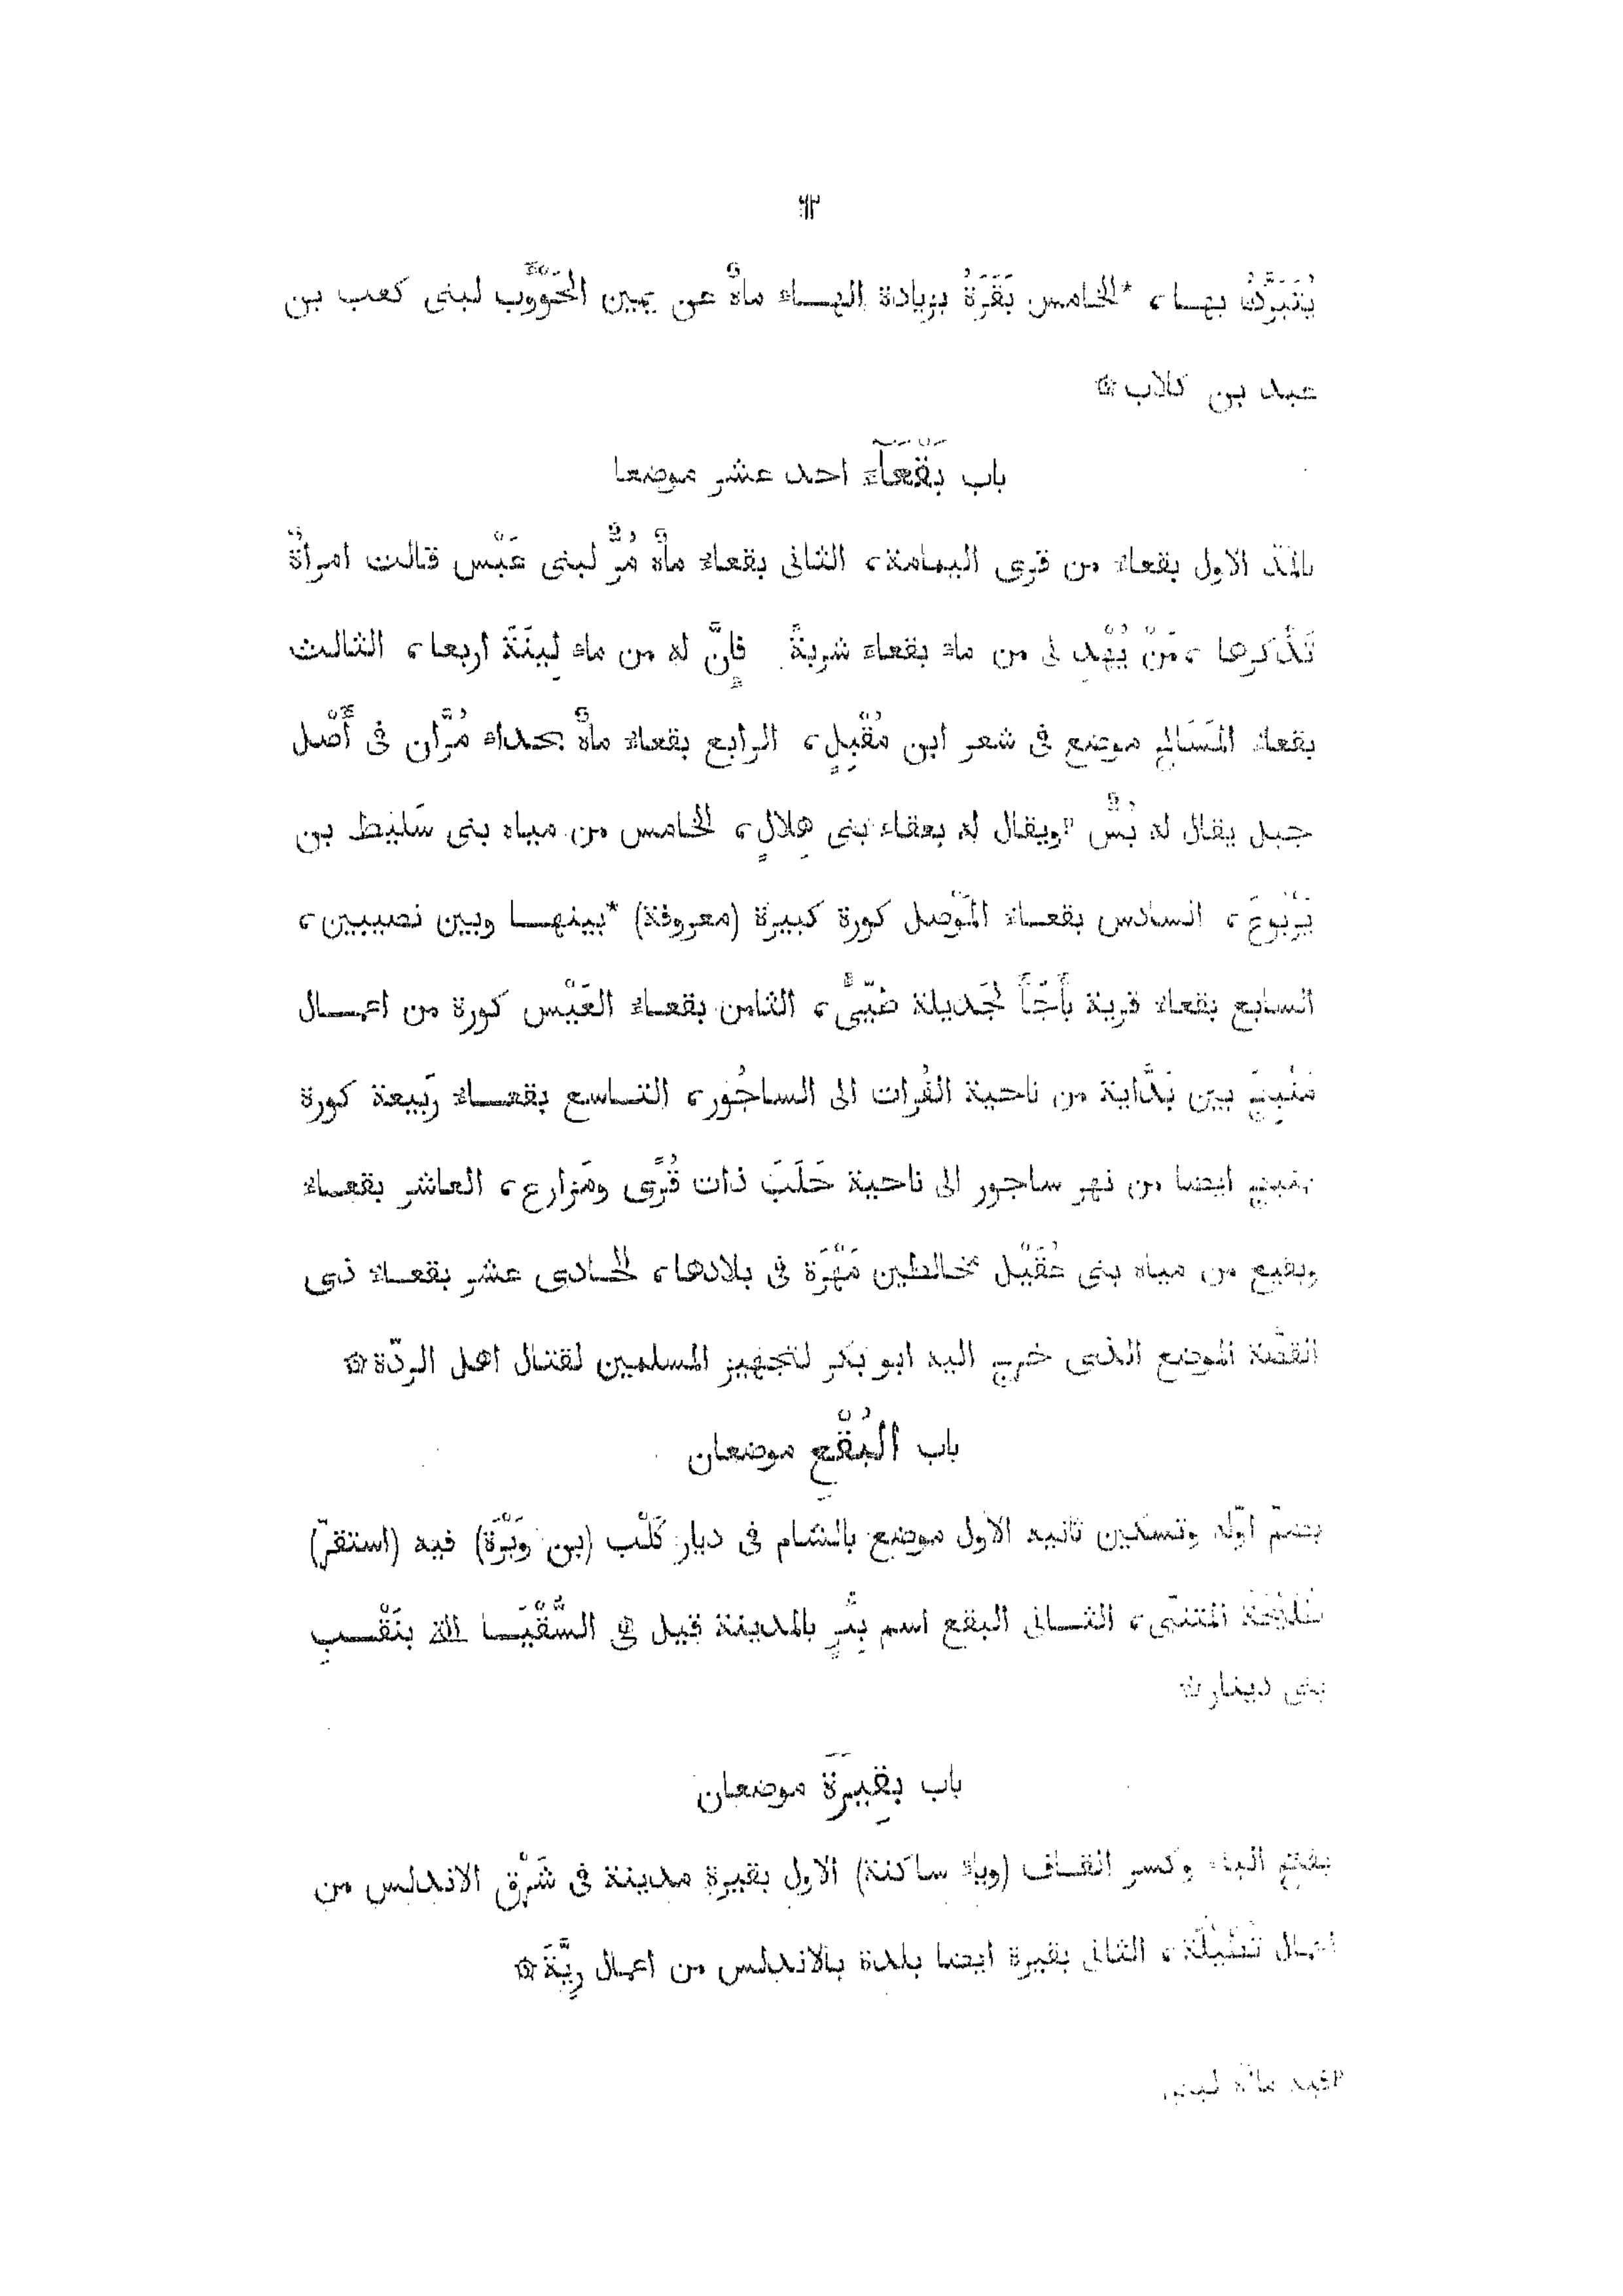 ٦٢
يُتَبَرَّكُ بهاء *الخامس بَقَرَةُ بزيادة الهاء ماءٌ عن يمين الحَوْوَب لبنى كعب بن
عبد بن كلاب ۞
باب بَقْعَآء احد عشر موضعا
بالمدّ الاول بقعاء من قرى اليمامة، الثانى بقعاء ماءٌ مُرٌّ لبنى عَبْس قالت امرأةٌ
تَذْكرها ، مَنْ يُهْدِ لى من ماء بقعاء شربةً فإنَّ له من ماء لِينَةَ اربعا، الثالث
بقعاء المَسَالح موضع فى شعر ابن مُقْبِلٍ، الرابع بقعاء ماءٌ بحداء مُرَّان فى أَصْل
جبل يقال له بُسٌّ "ويقال له بعقاء بنى هِلالٍ، الخامس من مياه بنى سَليْط بن
يَرْبُوعَ، السادس بقعاء المَوْصل كورة كبيرة (معروفة) *بينها وبين نصيبين،
السابع بقعاء قرية بأَجَأَ لجَديلة طَيّىءٍ، الثامن بقعاء العَيْس كورة من اعمال
مَنْبِجَ بين بَدَّاية من ناحية الفُرات الى الساجُور، التاسع بقعاء رَبيعة كورة
بمنبج ايضا من نهر ساجور الى ناحية حَلَبَ ذات قُرًى ومَزارع، العاشر بقعاء
وبقيع من مياه بنى عُقَيْل مخالطين مَهْرَة فى بلادها، الحادى عشر بقعاء ذى
القصّة الموضع الذى خرج اليه ابو بَكر لتجهيز المسلمين لقتال اهل الردّة ۞
باب البُقْعِ موضعان
بضمّ اوّله وتسكين ثانيه الاول موضع بالشام فى ديار كَلْب (بن وَبْرَة) فيه (استقرّ)
طُلَيْحَة المتنبّى، الثانى البقع اسم بِئْرٍ بالمدينة قيل هى السُّقْيَا التى بنَقْبِ
بنى دينار ۞
باب بَقِيرَة موضعان
بفتح الباء وكسر القاف (وياء ساكنة) الاول بقيرة مدينة فى شَرْقِ الاندلس من
اعمال تُطِيلَة، الثانى بقيرة ايضا بلدة بالاندلس من اعمال رِيَّةَ ۞
"فيه ماء